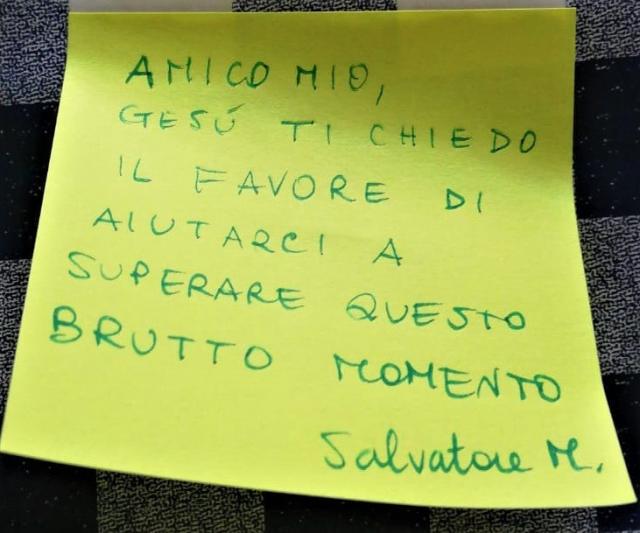 AMICO MIO,
GESÚ TI CHIEDO
IL FAVORE DI
AIUTARCI A
SUPERARE QUESTO
BRUTTO MOMENTO
Salvatore M.